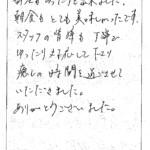 朝食もとても美味しかったです。
スタッフの皆様も丁寧で
ゆったり対応して下さり
癒しの時間を過ごさせて
いただきました。
ありがとうございました。